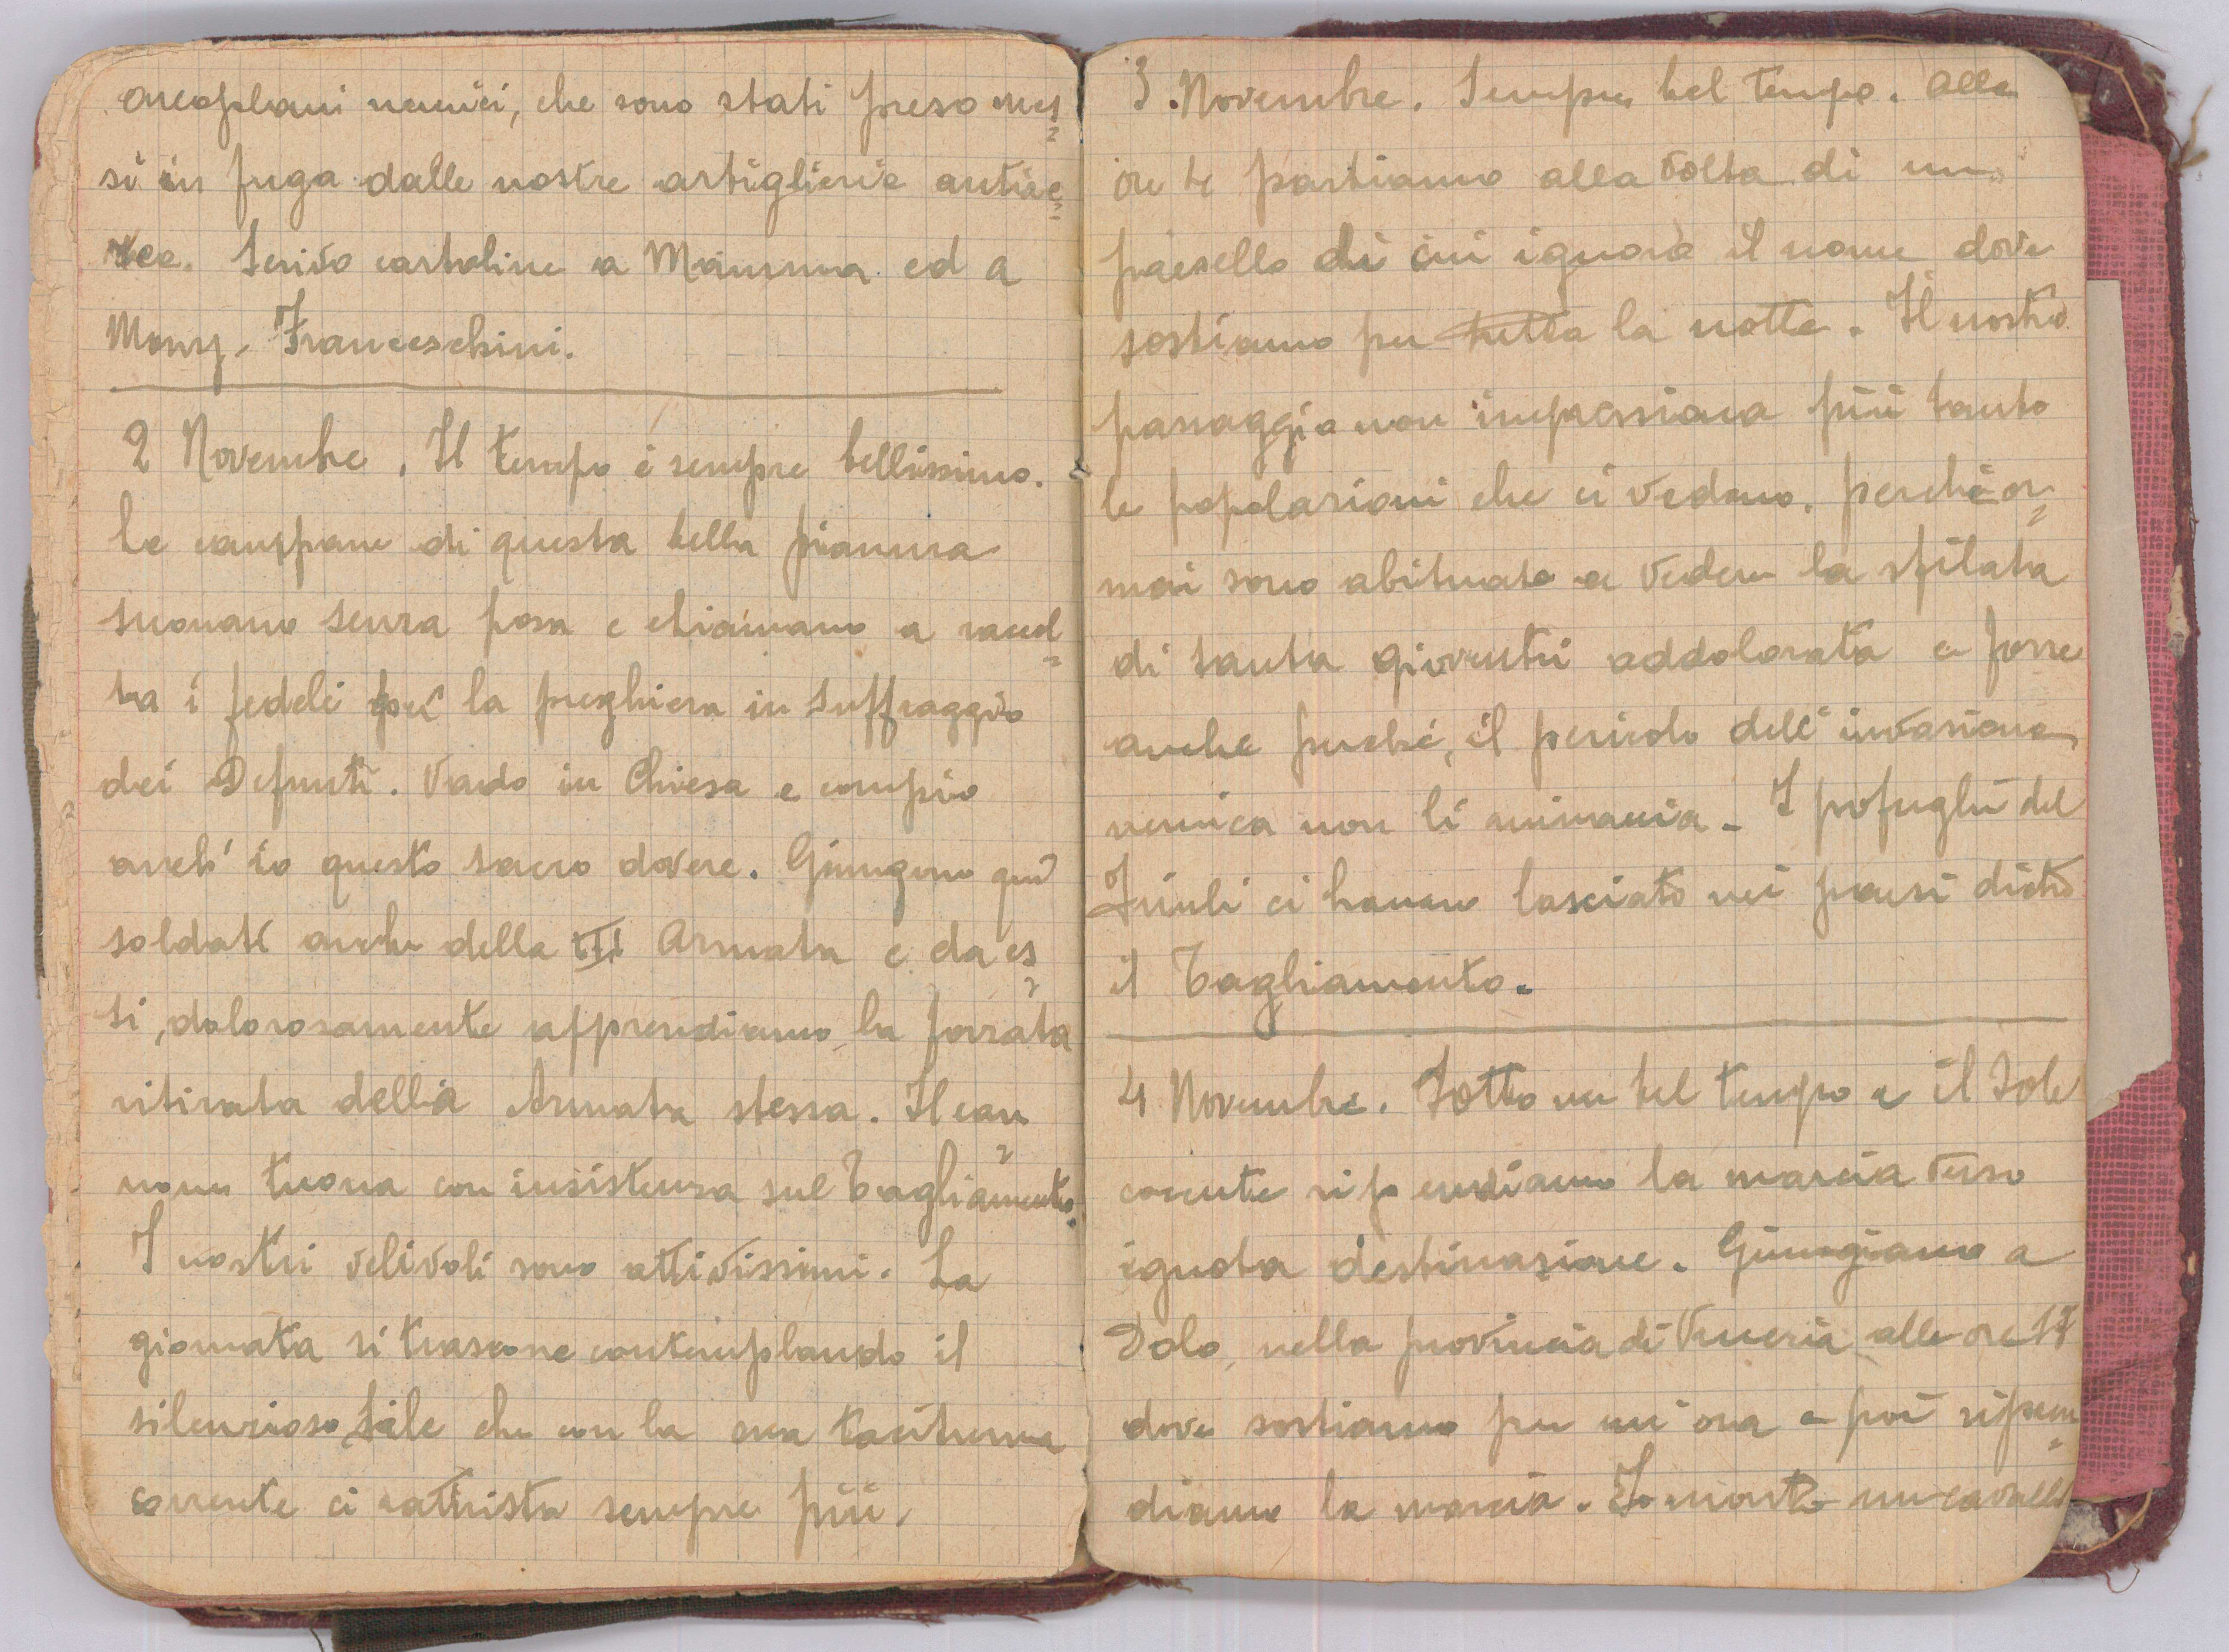 areoplani nemici, che sono stati preso mes=
si in fuga dalle nostre artiglierie antiae=
ree. Scrivo cartoline a Mamma ed a
Mons. Franceschini.
2 Novembre. Il tempo è sempre bellissimo.
Le campane di questa bella pianura
suonano senza posa e chiamano a raccol=
ta i fedeli per la preghiera in suffraggio
dei Defunti. Vado in Chiesa e compio
anch'io questo sacro dovere. Giungono qui
soldati anche della III Armata e da es=
si, dolorosamente apprendiamo la forzata
ritirata della Armata stessa. Il can=
none tuona con insistenza sul Tagliamento.
I nostri velivoli sono attivissimi. La
giornata si trascorre contemplando il
silenzioso Sile che con la sua taciturna
corrente ci rattrista sempre più.
3. Novembre. Sempre bel tempo. Alle
ore 4 partiamo alla volta di un
paesello di cui ignoro il nome dove
sostiamo per tutta la notte. Il nostro
passaggio non impressiona più tanto
le popolazioni che ci vedono, perchè or=
mai sono abituate a vedere la sfilata
di tanta gioventù addolorata e forse
anche perchè, il pericolo dell'invasione
nemica non li minaccia. I profughi del
Friuli ci hanno lasciato nei paesi dietro
il Tagliamento.
4 Novembre. Sotto un bel tempo e il Sole
cocente riprendiamo la marcia verso
ignota destinazione. Giungiamo a
Dolo, nella provincia di Venezia alle ore 17
dove sostiamo per un'ora e poi ripren=
diamo la marcia. Io monto un cavallo